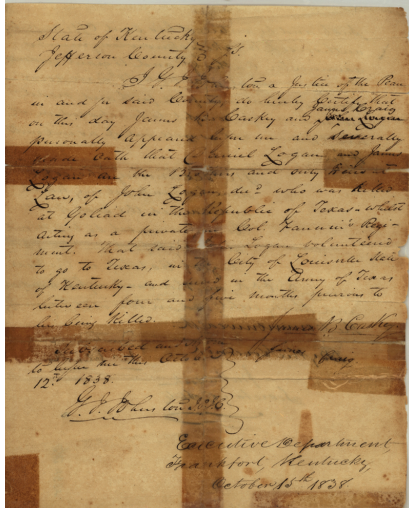 State of Kentucky
Jefferson County Sct.
a Justice of the Peace
in and for said County, do hereby Certify that
on this day James B. Caskey and James Craig
personally appeared before me and severally
made Oath that Daniel Logan and James
Logan are the Brothers and only Heirs at
Law, of John Logan, dec'd who was killed
at Goliad in the Republic of Texas - whilst
acting as a private in Col. Fannin's Regi-
ment. That said Logan volunteered
to go to Texas, in the City of Louisville State
of Kentucky - and was in the Army of Texas
between four and five months, previous to
his being Killed.
B Caskey
Subscribed and
to before me this
12th 1838.
Executive Department,
Frankfort, Kentucky,
October 15th 1838